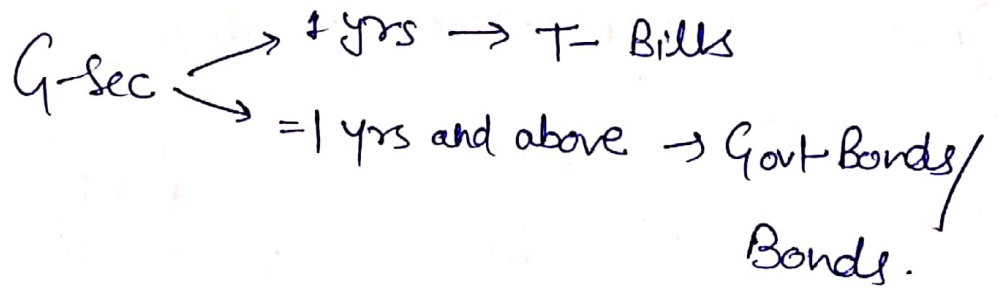 G-Sec → 1 yrs → T- Bills
→ =1 yrs and above → Govt Bonds/
Bonds.